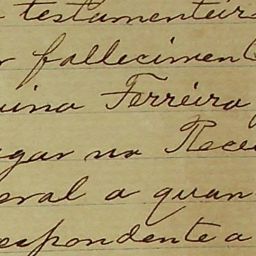 testamenteir
fallecimen
uina Ferreira
gar na Rece
eral a quan
espondente a